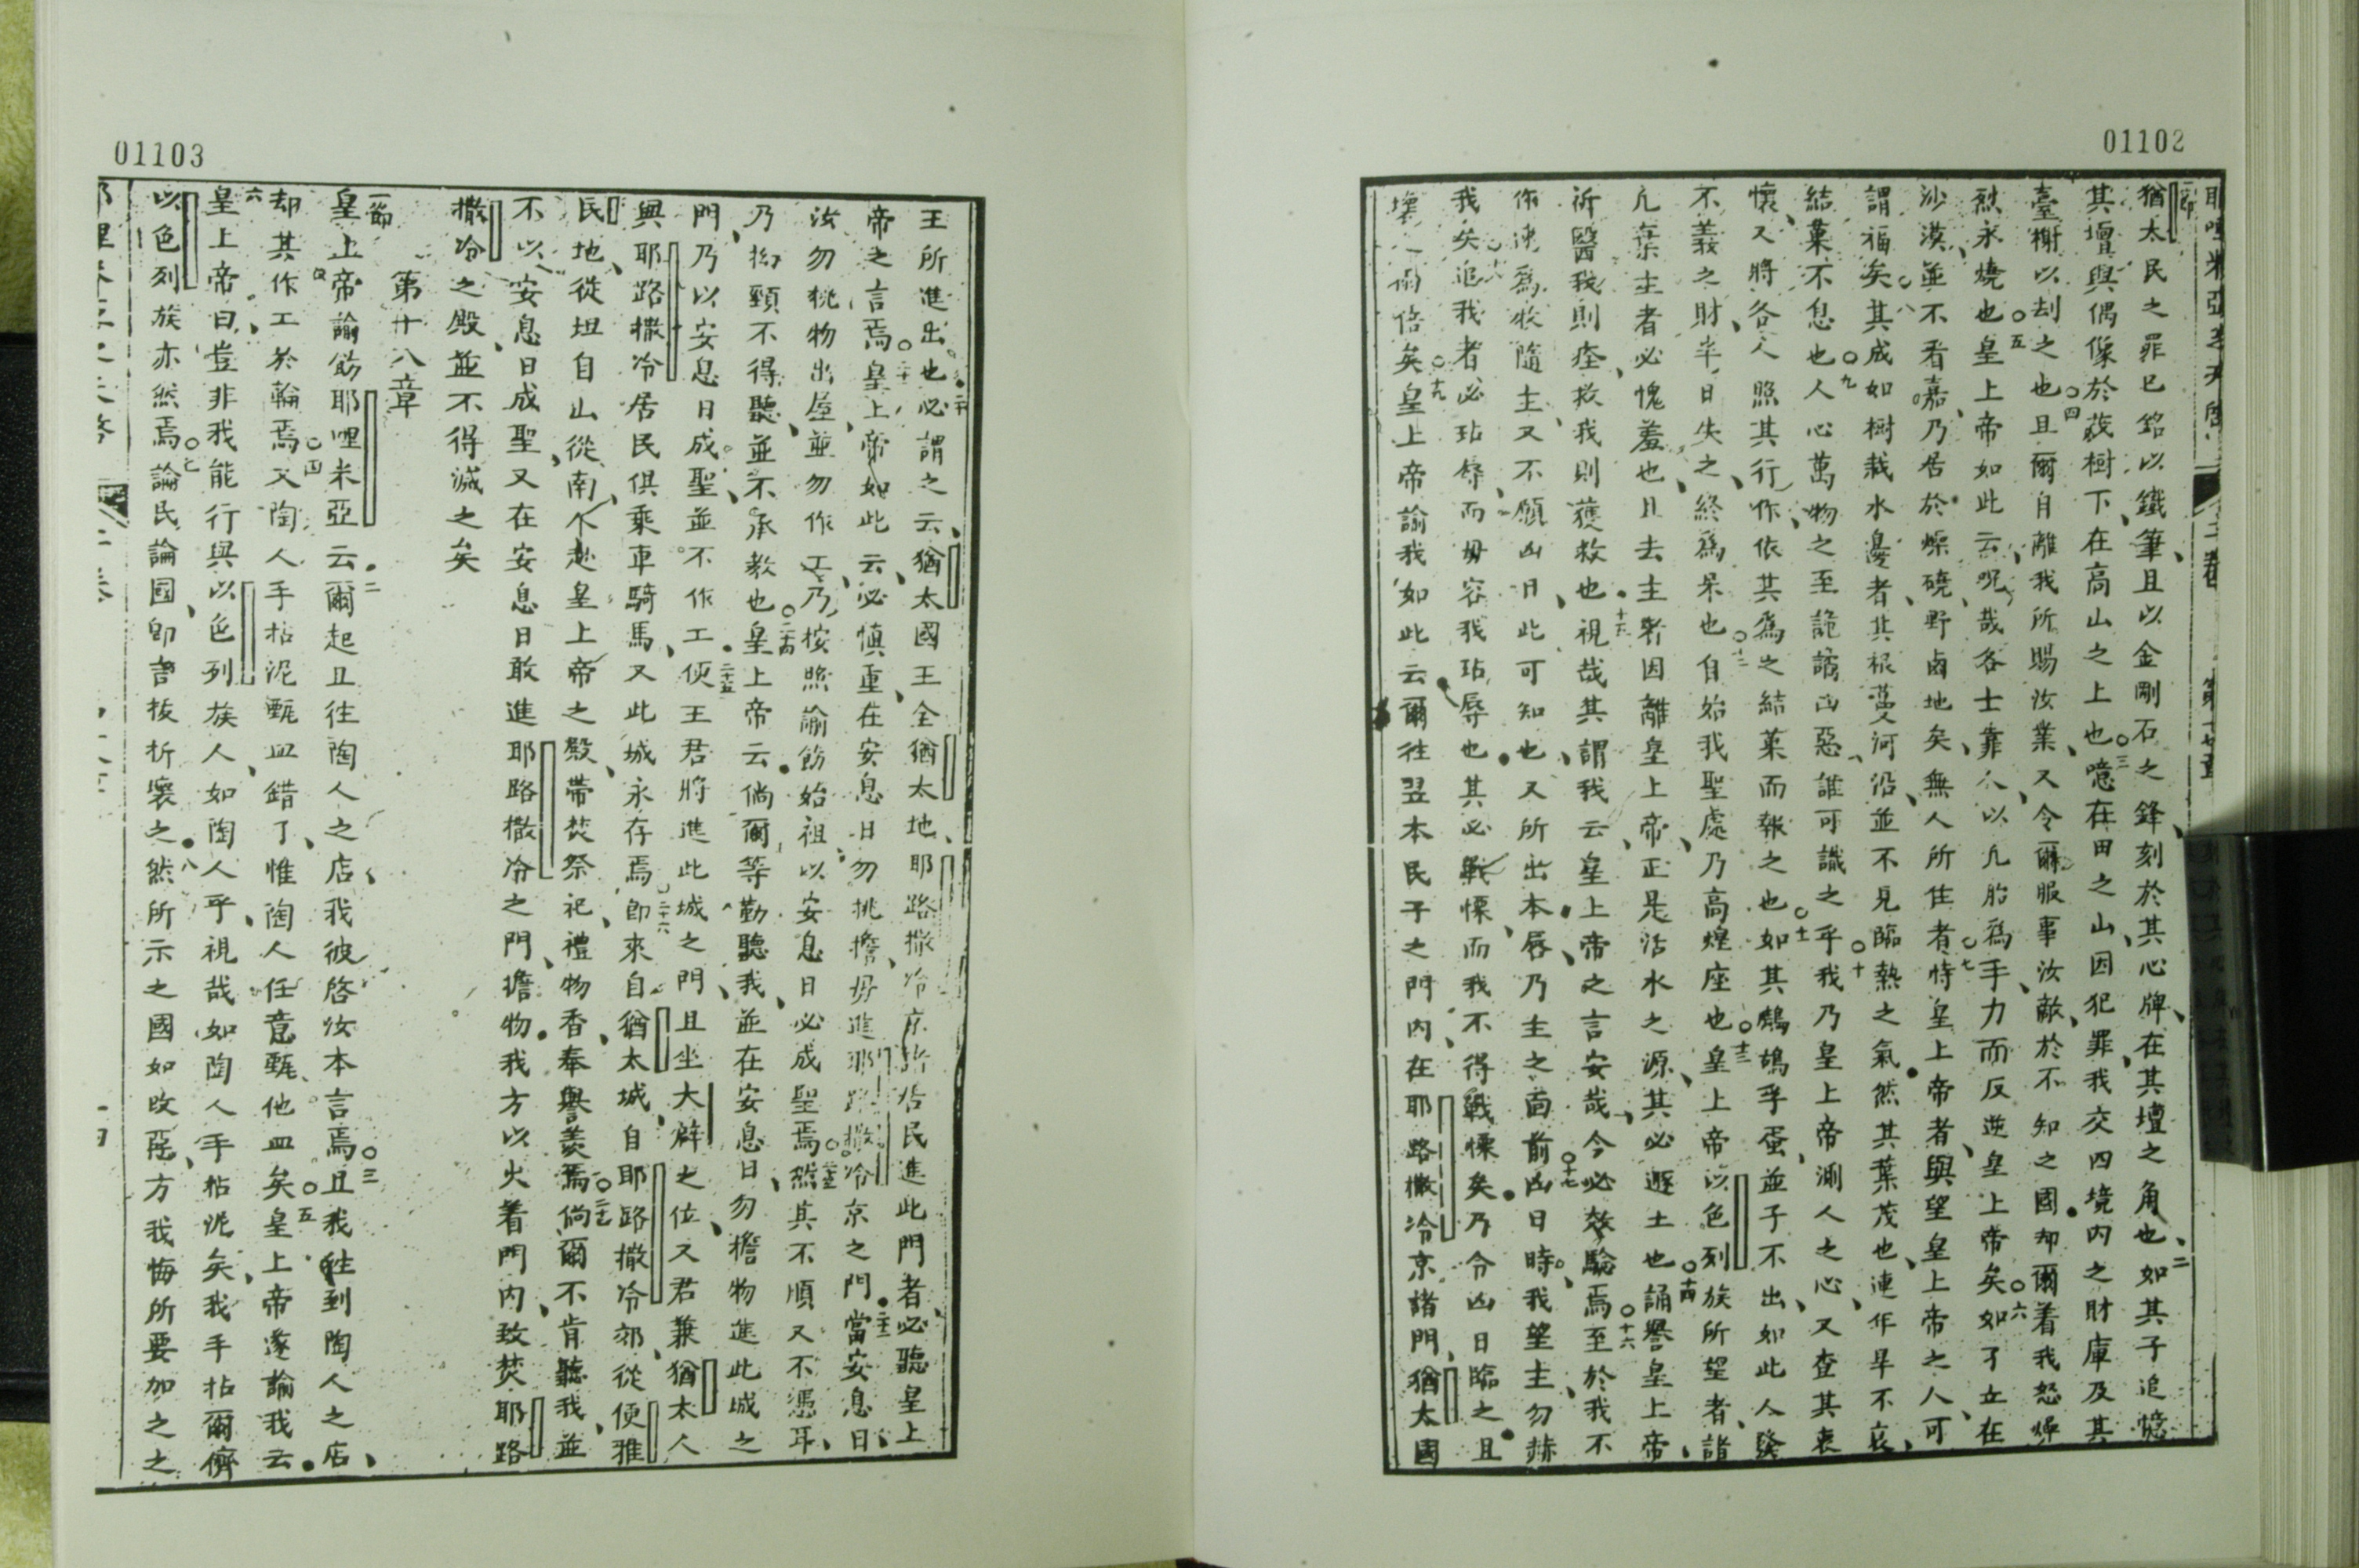 01102
猶太民之罪已銘以鐵筆且以金剛石之鋒刻於其心牌在其壇之角也二如其子追憶
其壇與偶像於茂樹下在高山之上也三噫在田之山因犯罪我交四境內之財庫及其
臺榭以刦之也四且爾自離我所賜汝業又令爾服事汝敵於不知之國却爾着我怒燁
烈永燒也五皇上帝如此云呪哉各士靠人以凡胎為手力而反逆皇上帝矣六如孑立在
沙漠並不看嘉乃居於燥磽野鹵地矣無人所住者七恃皇上帝者與望皇上帝之人可
謂福矣八其成如樹栽水邊者其根蔓河沿並不見臨熱之氣然其葉茂也連年旱不哀
結菓不息也九人心萬物之至詭譎凶惡誰可識之乎十我乃皇上帝測人之心又查其衷
懷又將各人照其行作依其為之結菓而報之也十一如其鷓鴣孚蛋並子不出如此人發
不義之財半日失之終為呆也十二自始我聖處乃高煌座也十三皇上帝以色列族所望者諸
凡棄主者必愧羞也且去主者因離皇上帝正是活水之源其必遯土也十四誦譽皇上帝
祈醫我則痊救我則獲救也十五視哉其謂我云皇上帝之言安哉今必效驗焉十六至於我不
作速為牧隨主又不願凶日此可知也又所出本唇乃主之面前十七凶日時我望主勿赫
我矣十八追我者必玷辱而毋容我玷辱也其必戰慄而我不得戰慄矣乃令凶日臨之且
壞之兩倍矣十九皇上帝諭我如此云爾往翌本民子之門內在耶路撒冷京諸門猶太國
01103
王所進出也二十必謂之云猶太國王全猶太地耶路撒冷京諸居民進此門者必聽皇上
帝之言焉二十一皇上帝如此云必慎重在安息日勿挑擔毋進耶路撒冷京之門二十二當安息日
汝勿挑物出屋並勿作工乃按照諭飭始祖以安息日必成聖焉二十三然其不順又不憑耳
乃拗頸不得聽並不承教也二十四皇上帝云倘爾等勤聽我並在安息日勿擔物進此城之
門乃以安息日成聖並不作工二十五便王君將進此城之門且坐大辟之位又君兼猶太人
與耶路撒冷居民俱乘車騎馬又此城永存焉二十六即來自猶太城自耶路撒冷郊從便雅
民地從坦自山從南個赴皇上帝之殿帶焚祭祀禮物香奉譽羨焉二十七倘爾不肯聽我並
不以安息日成聖又在安息日敢進耶路撒冷之門擔物我方以火着門內致焚耶路
撒冷之殿並不得滅之矣
第十八章
一節皇上帝諭飭耶哩米亞云二爾起且往陶人之店我彼啓汝本言焉三且我往到陶人之店
却其作工於輪焉四又陶人手拈泥甄皿錯了惟陶人任意甄他皿矣五皇上帝遂諭我云
六皇上帝曰豈非我能行與以色列族人如陶人乎視哉如陶人手拈泥矣我手拈爾儕
以色列族亦然焉七論民論國即言拔折壞之八然所示之國如改惡方我悔所要加之之